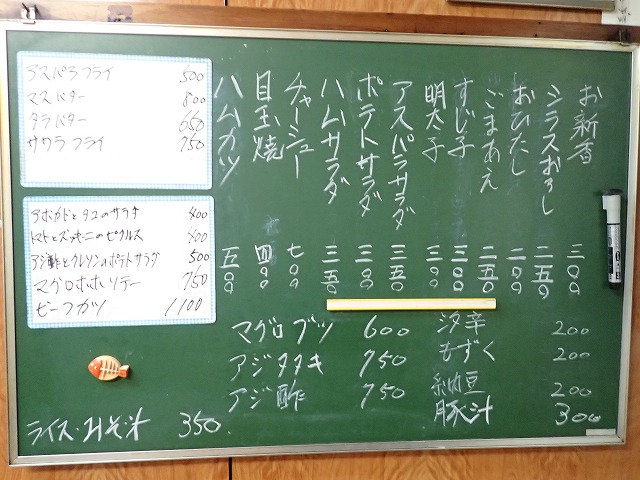 アスパラフライ 500
マスバター 800
タラバター 650
サワラフライ 750
アボカドとタコのサラダ 400
トマトとズッキーニのピクルス 400
アジ酢とクレソンのポテトサラダ 500
マグロホホソテー 750
ビーフカツ 1100
お新香 三〇〇
シラスおろし 二五〇
おひたし 二〇〇
ごまあえ 二五〇
すじ子 三〇〇
明太子 三〇〇
アスパラサラダ 三五〇
ポテトサラダ 三〇〇
ハムサラダ 三五〇
チャーシュー 七〇〇
目玉焼 四〇〇
ハムカツ
マグロブツ 600
アジタタキ 750
アジ酢 750
汐辛 200
もずく 200
納豆 200
豚汁 300
ライス・みそ汁 350